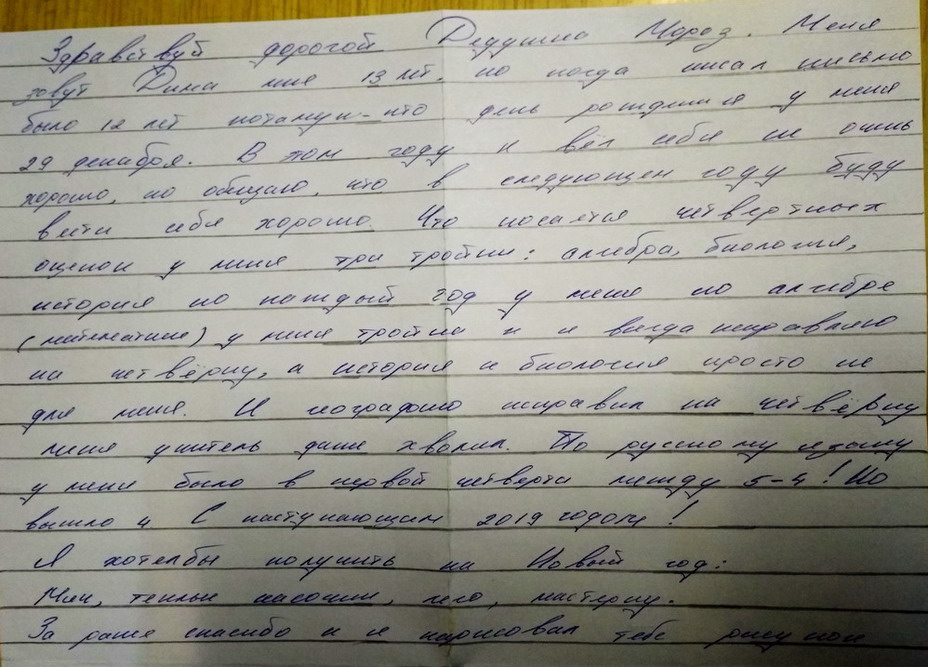 Здравствуй дорогой Дедушка Мороз. Меня
зовут Дима мне 13 лет. но когда писал письмо
было 12 лет потамук-что день рождения у меня
29 декабря. В том году я вёл себя не очень
хорошо, но обищаю, что в следующем году буду
вести себя хорошо. Что косается четвертных
оценок у меня три тройки: алгебра, биология,
история но каждый год у меня по алгебре
(математике) у меня тройка и я всегда исправляю
на четвёрку, а история и биология просто не
для меня. И географию исправил на четвёрку
меня учитель даже хволил. По русскому языку
у меня было в первой четверти между 5-4! Но
вышло 4 С наступающим 2019 годом!
Я хотелбы получить на Новый год:
Мяч, теплые носочки, лего,
За ранее спасибо и я нарисовал тебе рисунок